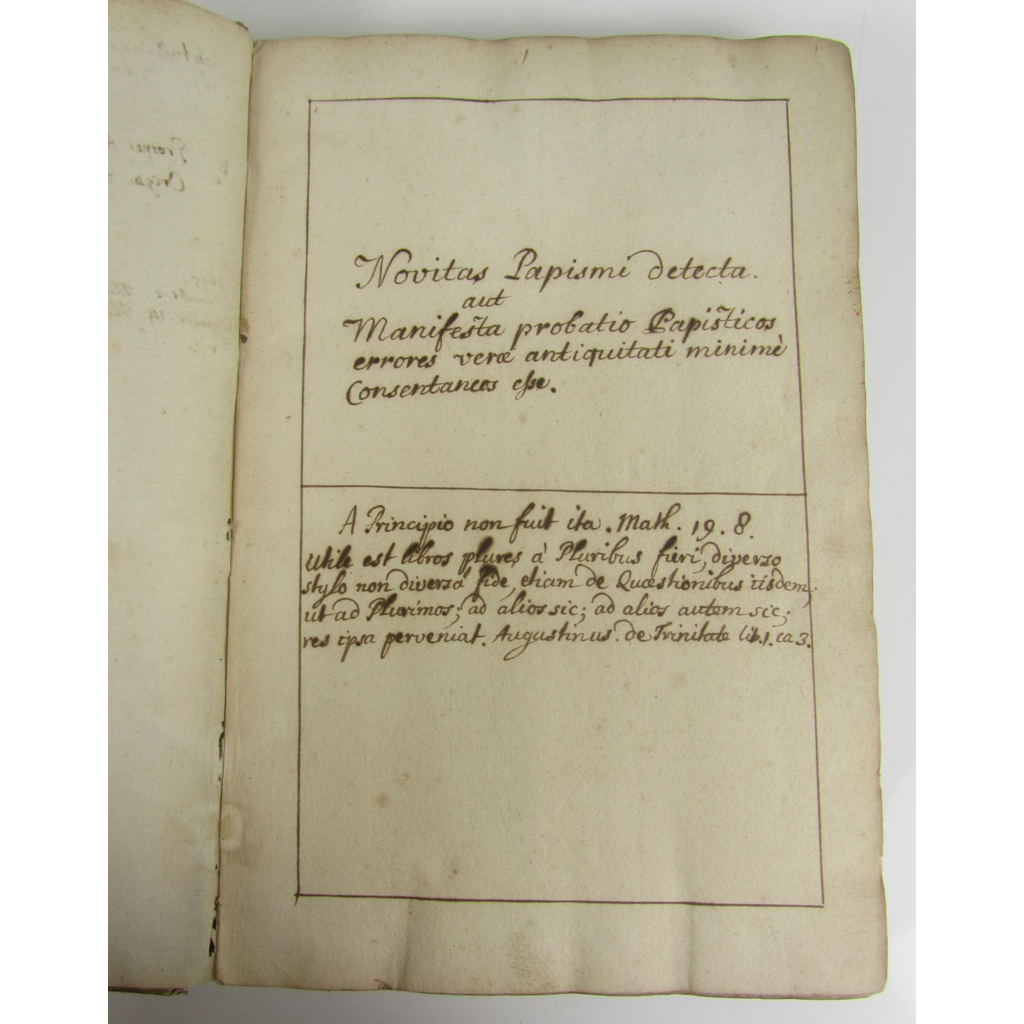 Novitas Papismi detecta.
aut
Manifesta probatio Papisticos
errores veræ antiquitati minimè
Consentaneos esse.
A Principio non fuit ita. Math. 19. 8.
Utile est libros plures à Pluribus fieri, diverso
stylo non diversâ fide, etiam de Quæstionibus iisdem,
ut ad Plurimos; ad alios sic; ad alios autem sic;
res ipsa perveniat. Augustinus. de Trinitate lib.1. ca 3.